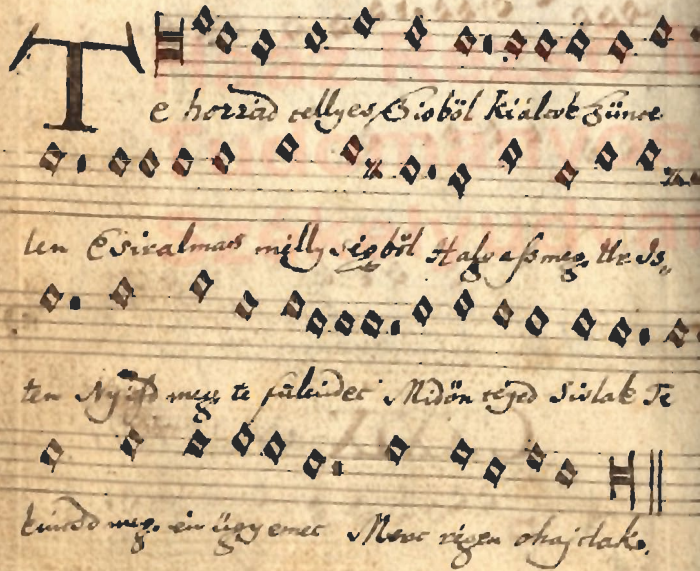 Te hozzád tellyes Szivből Kiáltok Szünte
len Csiralmas mélly sigből Halgass meg Ur Is,,
ten Nyisd meg te füleidet Midőn téged hivlak Te
kincsd meg én ügyemet Mert régen ohajtlak.